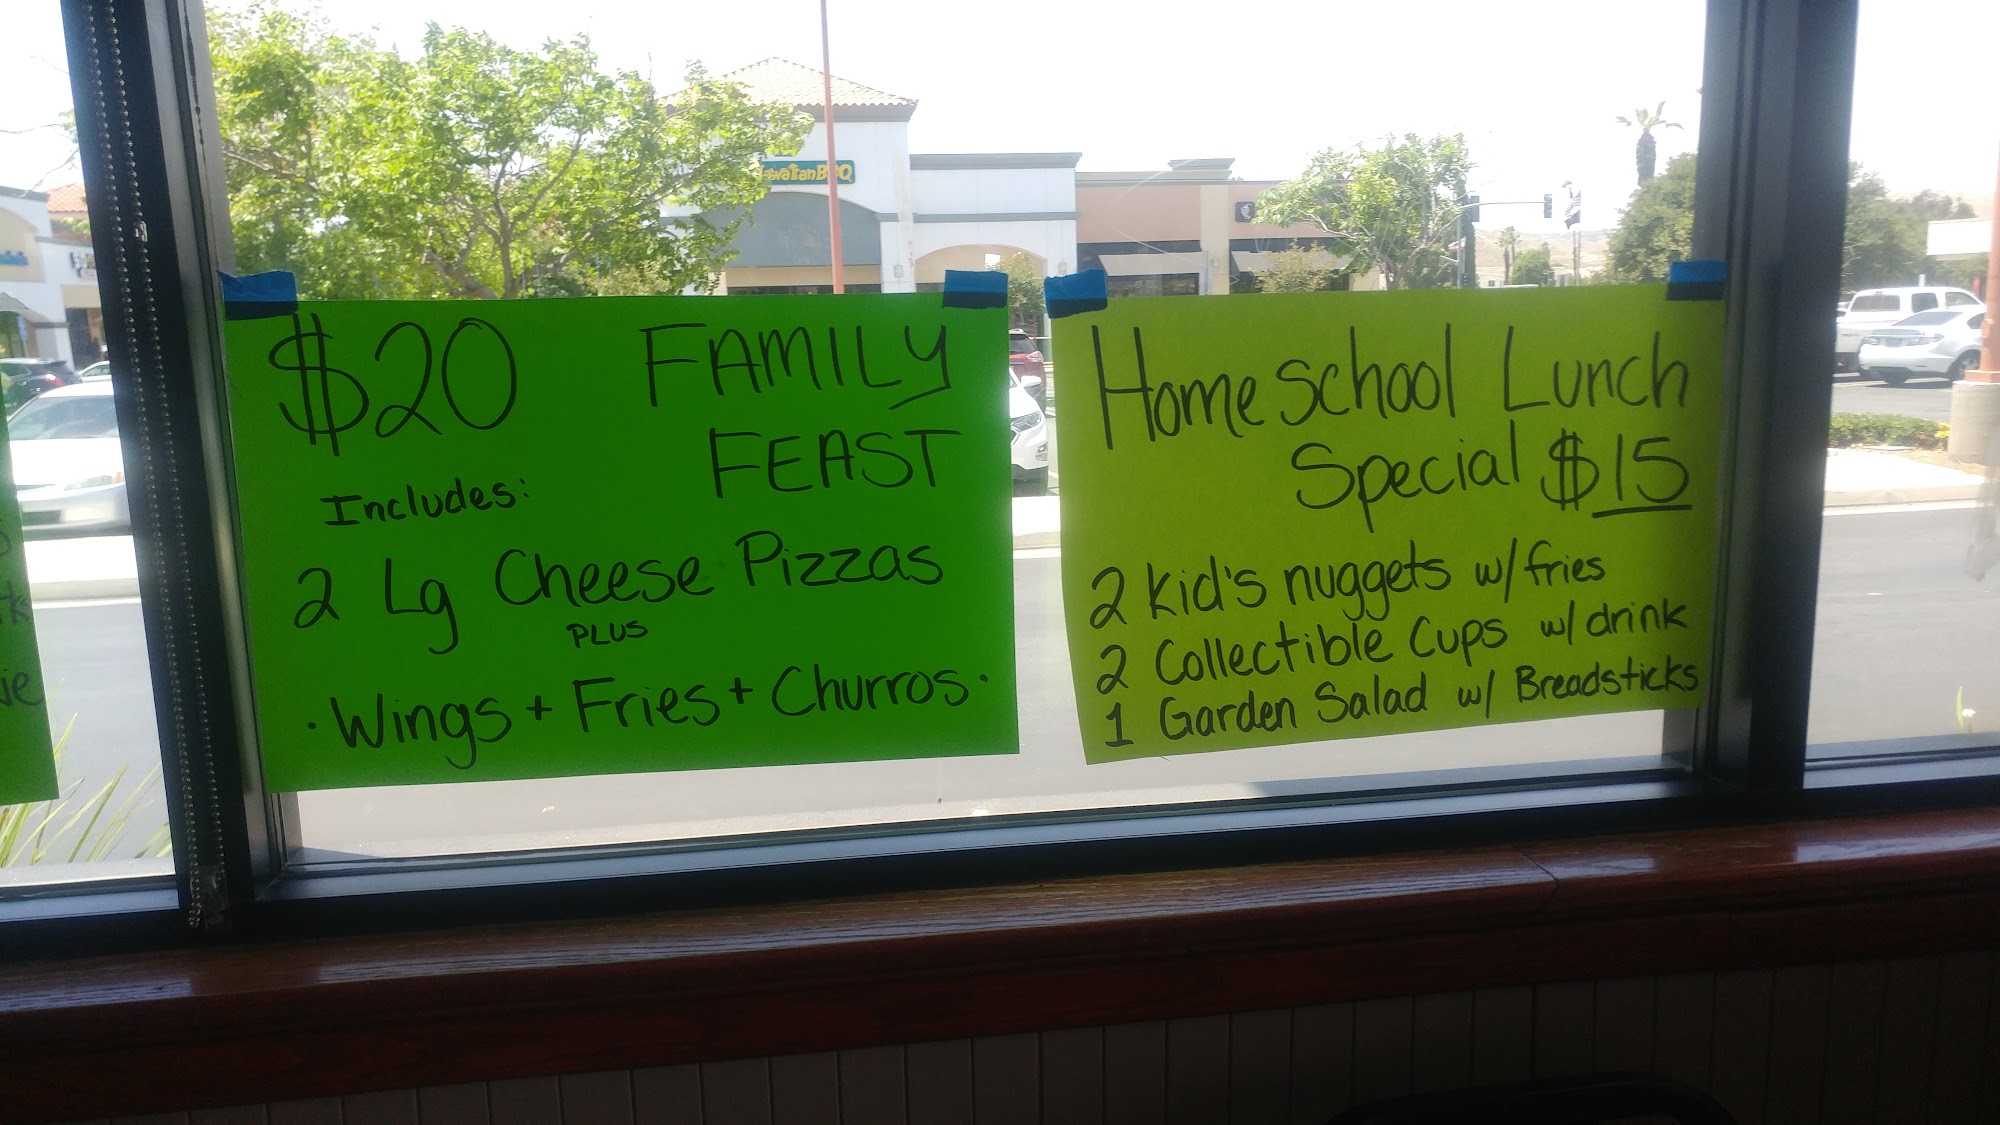 Hawaiian BBQ
$20 FAMILY
FEAST
Includes:
2 Lg Cheese Pizzas
PLUS
· Wings + Fries + Churros ·
Home School Lunch
Special $15
2 Kid's nuggets w/ fries
2 Collectible Cups w/ drink
1 Garden Salad w/ Breadsticks